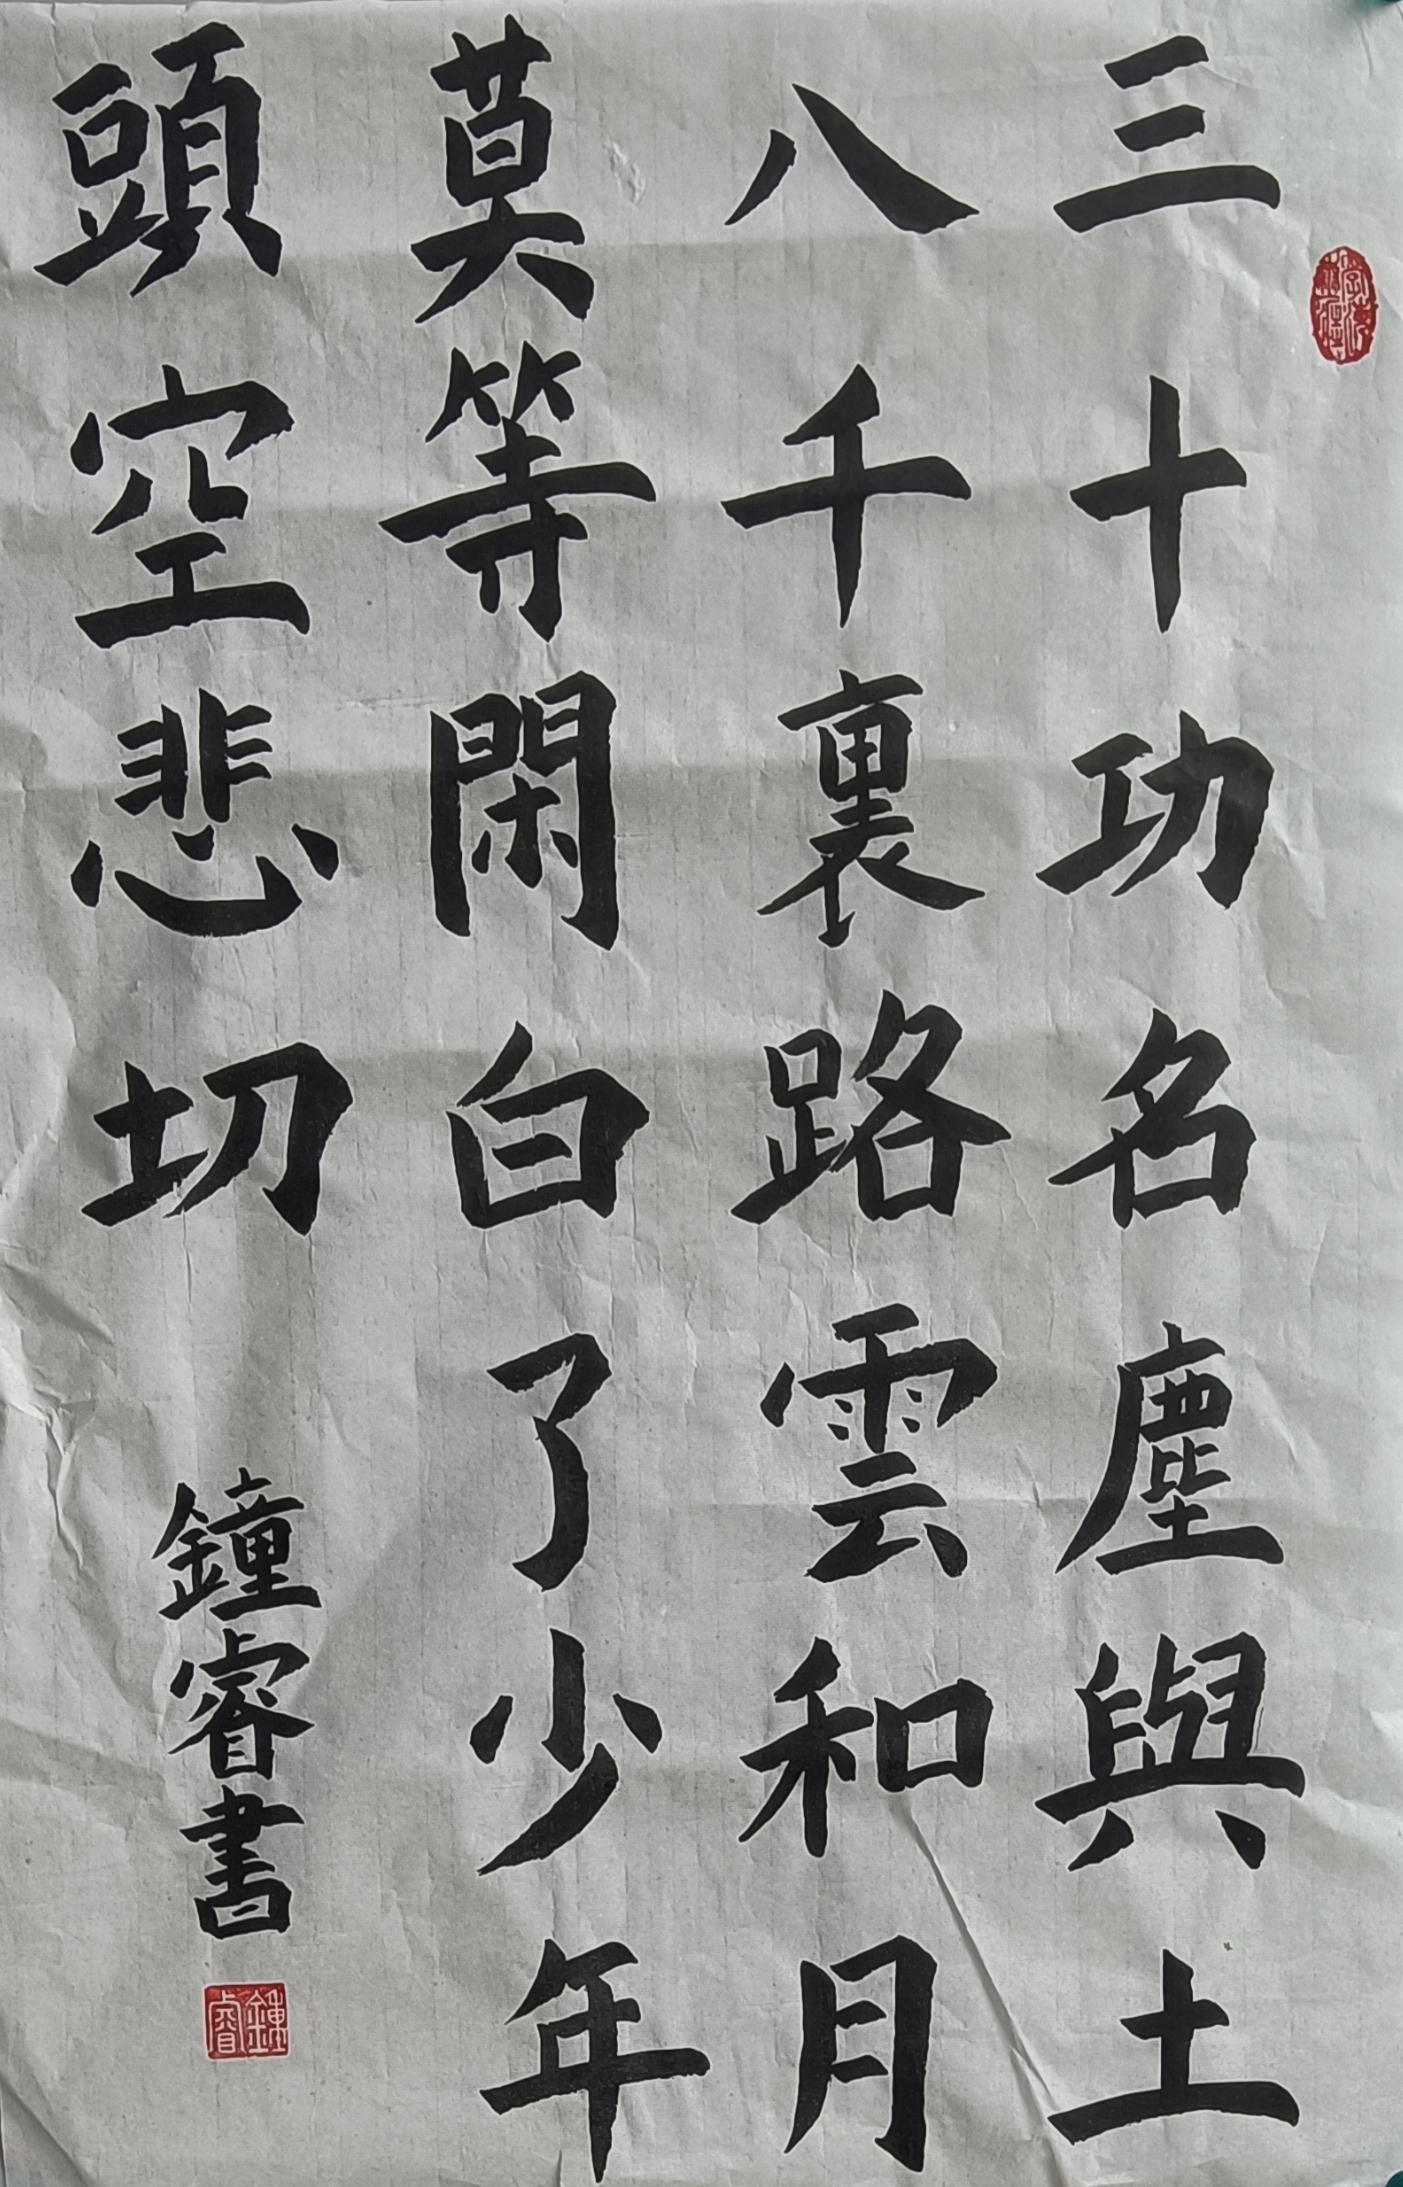 三十功名塵與土
八千裏路雲和月
莫等閑白了少年
頭空悲切
鐘睿書
鍾睿